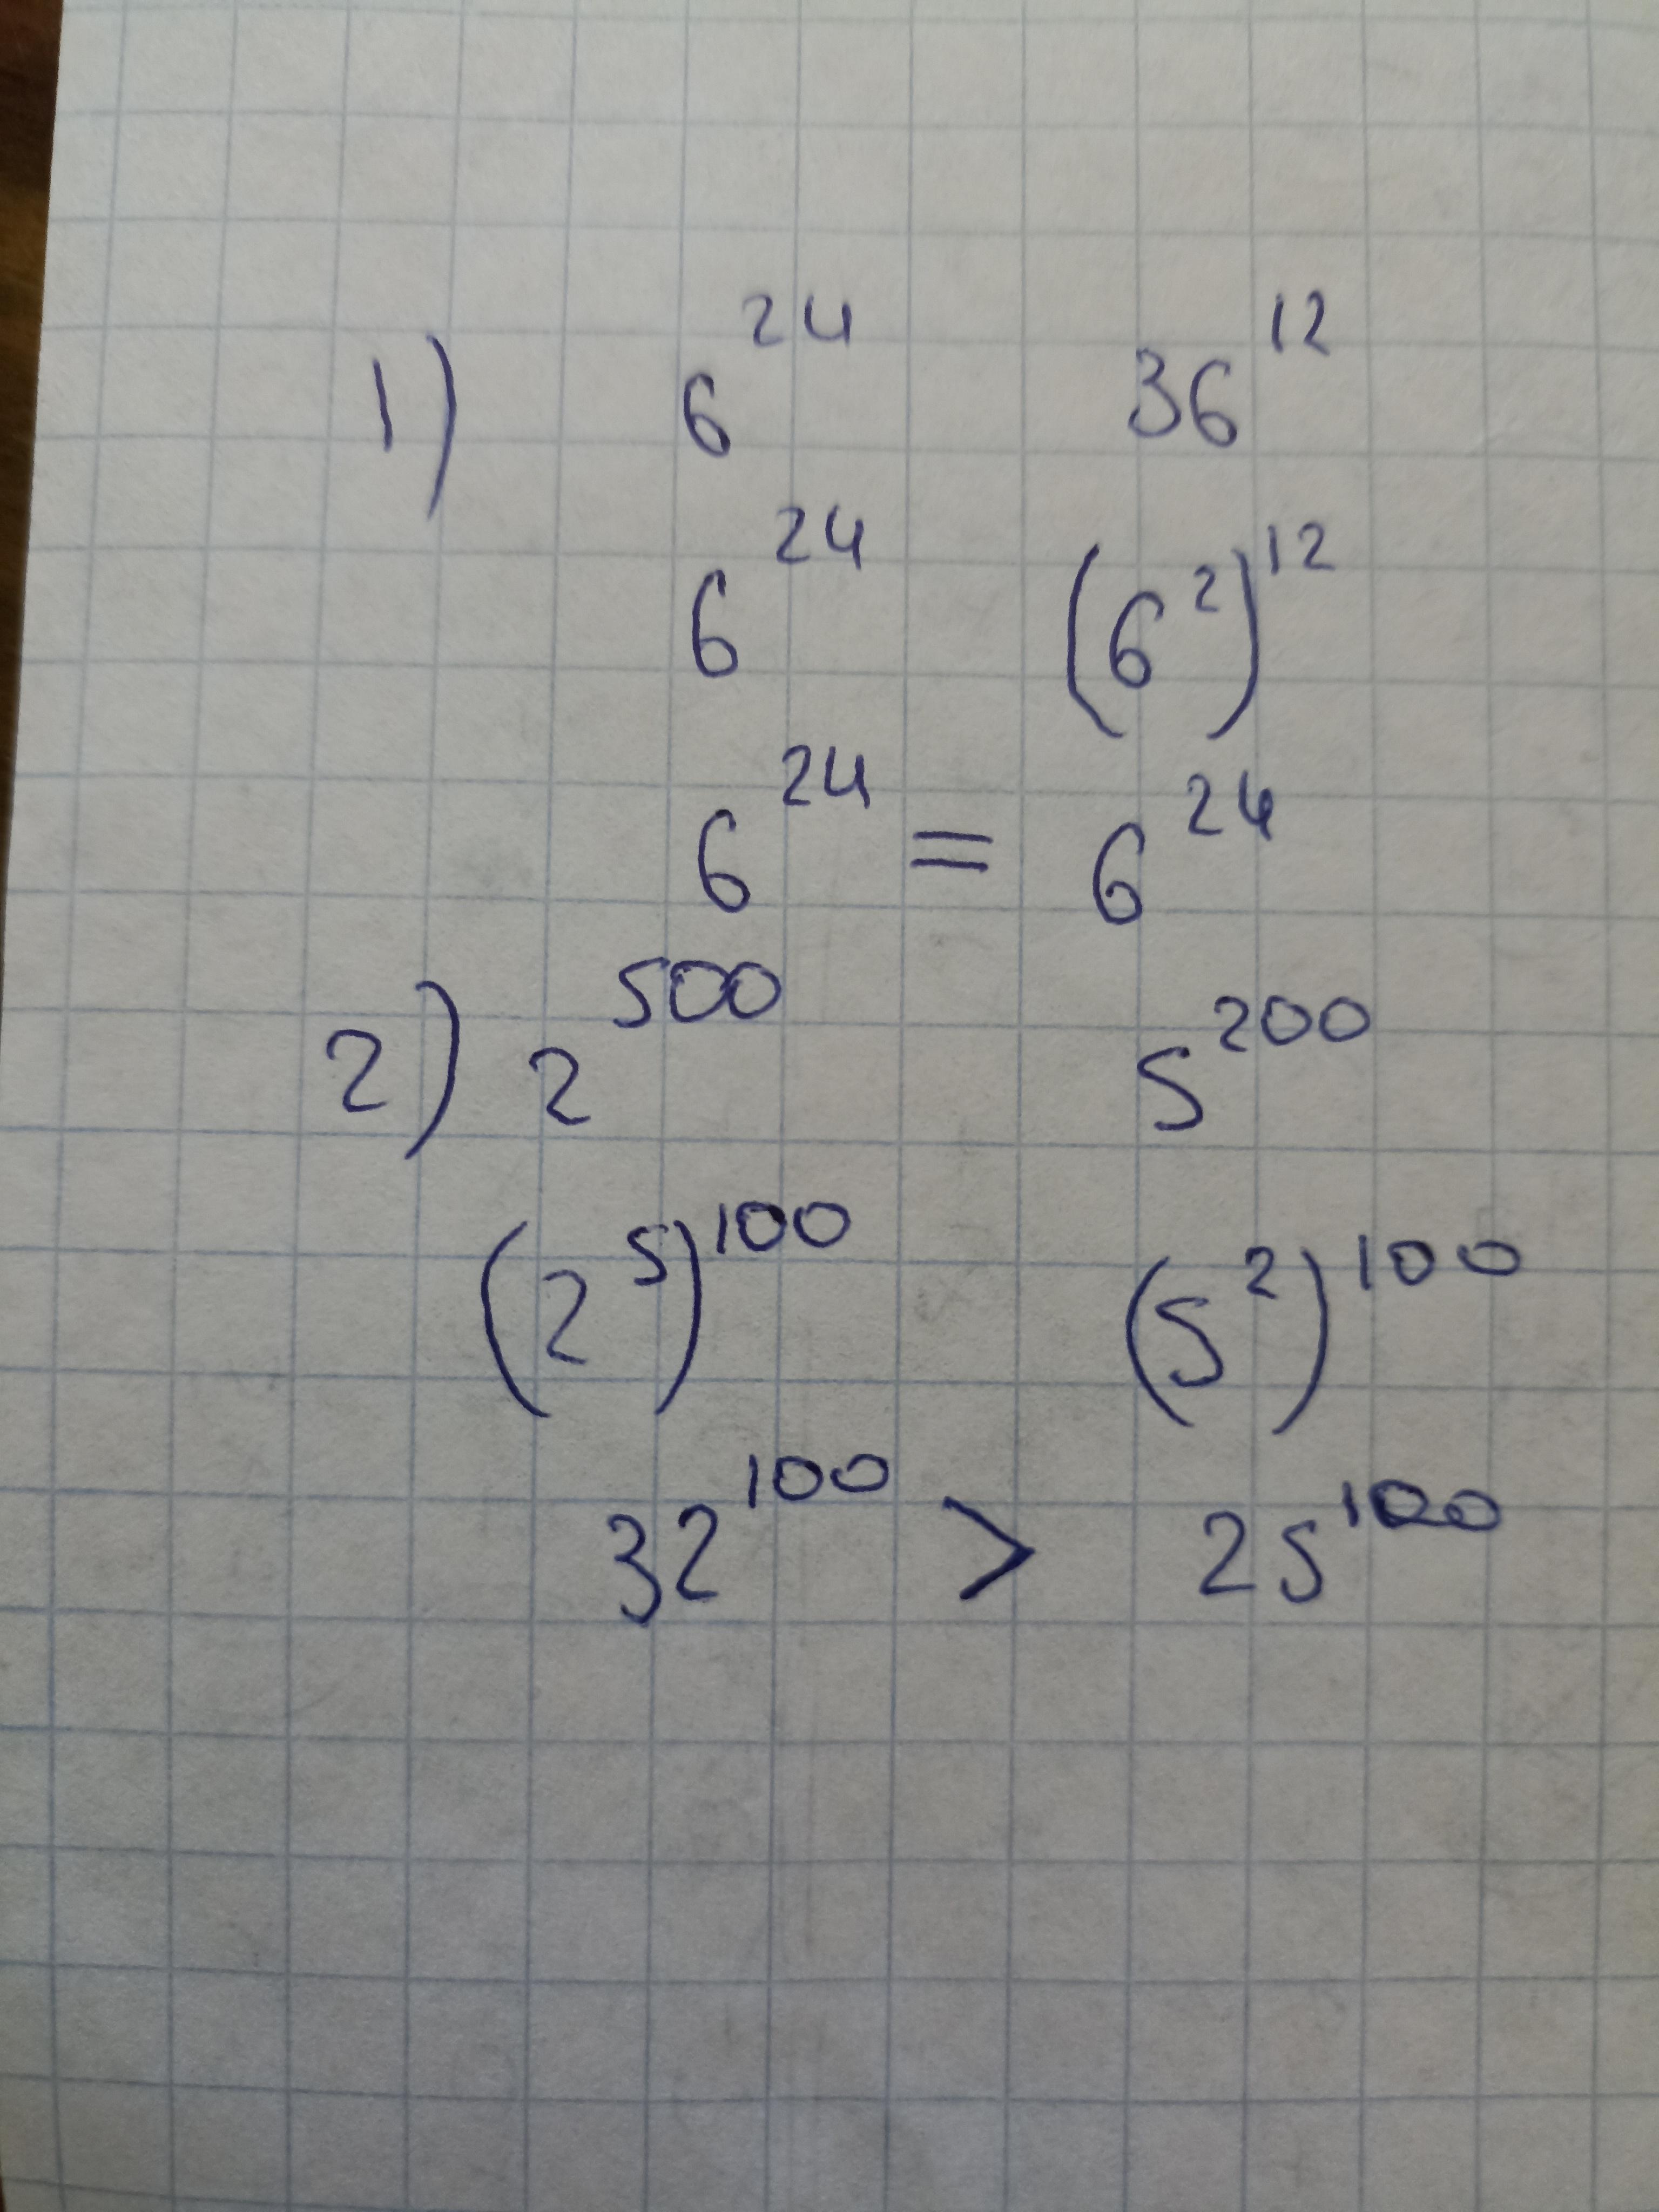 1) 6^24 36^12
6^24 (6^2)^12
6^24 = 6^24
2) 2^500 5^200
(2^5)^100 (5^2)^100
32^100 > 25^100